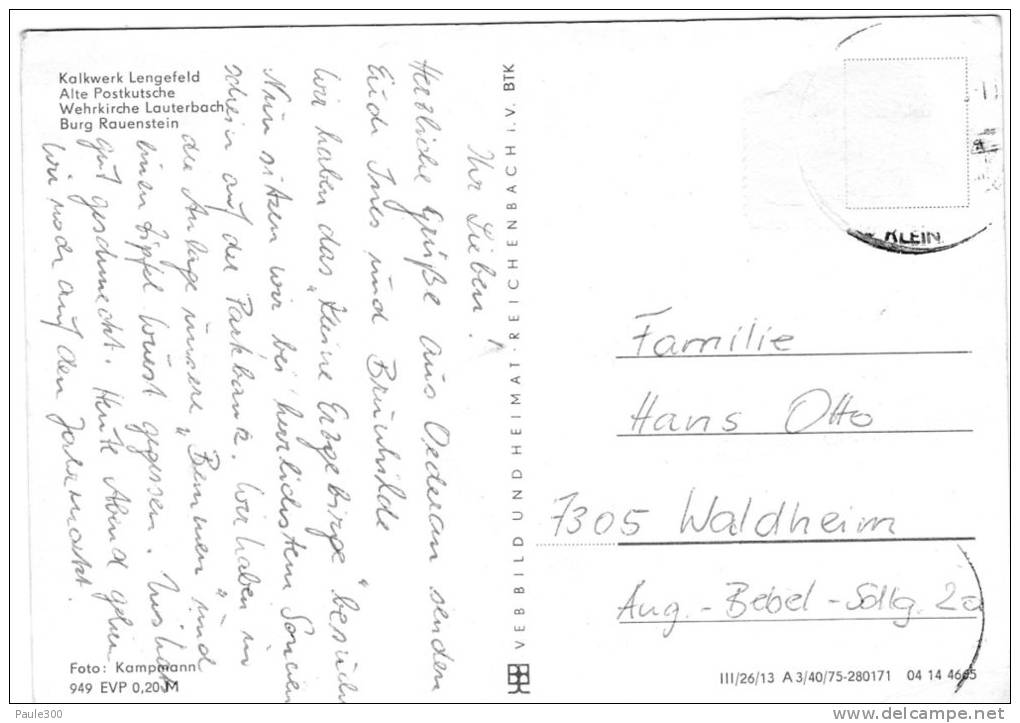 Kalkwerk Lengefeld
Alte Postkutsche
Wehrkirche Lauterbach
Burg Rauenstein
Ihr Lieben!
Herzliche Grüße aus Oederan senden
Euch Ines und Brunhilde
Wir haben das „Kleine Erzgebirge“ besucht
Nun sitzen wir bei herrlichstem Sonnen
schein auf der Parkbank. Wir haben in
der Anlage unsere „Bemmen“ und
einen Zipfel Wurst gegessen. Uns hat
gut geschmeckt. Heute Abend gehen
wir noch auf den Jahrmarkt.
Foto: Kampmann
949 EVP 0,20 M
VEB BILD UND HEIMAT · REICHENBACH i. V. BTK
KLEIN
Familie
Hans Otto
7305 Waldheim
Aug.-Bebel-Sdlg. 2a
III/26/13 A 3/40/75-280171 04 14 4665
Paule300
delcampe.net